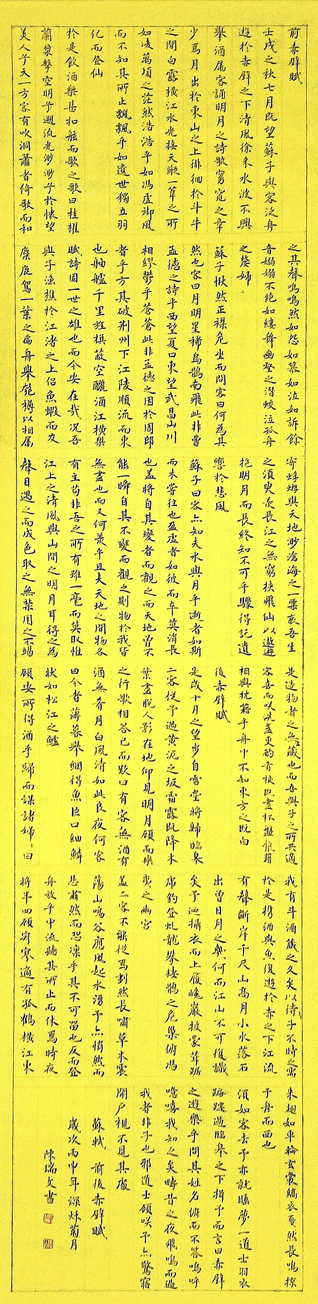 前赤壁賦
壬戌之秋七月既望蘇子與客泛舟
遊於赤壁之下清風徐來水波不興
舉酒屬客誦明月之詩歌窈窕之章
少焉月出於東山之上徘徊於斗牛
之間白露橫江水光接天縱一葦之所
如凌萬頃之茫然浩浩乎如馮虛御風
而不知其所止飄飄乎如遺世獨立羽
化而登仙
於是飲酒樂甚扣舷而歌之歌曰桂櫂
蘭槳擊空明兮溯流光渺渺兮於懷望
美人兮天一方客有吹洞簫者倚歌而和
之其聲嗚嗚然如怨如慕如泣如訴餘
音嫋嫋不絕如縷舞幽壑之潛蛟泣孤舟
之嫠婦
蘇子愀然正襟危坐而問客曰何為其
然也客曰月明星稀烏鵲南飛此非曹
孟德之詩乎西望夏口東望武昌山川
相繆鬱乎蒼蒼此非孟德之困於周郎
者乎方其破荊州下江陵順流而東
也舳艫千里旌旗蔽空釃酒江橫槊
賦詩固一世之雄也而今安在哉況吾
與子漁樵於江渚之上侶魚蝦而友
麋鹿駕一葉之扁舟舉匏樽以相屬
寄蜉蝣與天地渺滄海之一粟哀吾生
之須臾羨長江之無窮挾飛仙以遨遊
抱明月而長終知不可乎驟得託遺
響於悲風
蘇子曰客亦知夫水與月乎逝者如斯
而未嘗往也盈虛者如彼而卒莫消長
也蓋將自其變者而觀之而天地曾不
能瞬自其不變而觀之則物於我皆
無盡也而又何羨乎且夫天地之間物各
有主苟非吾之所有雖一毫而莫取惟
江上之清風與山間之明月耳得之為
聲目遇之而成色取之無禁用之不竭
是造物者之無盡藏也而吾與子之所共適
客喜而笑洗盞更酌肴核既盡杯盤狼藉
相與枕藉乎舟中不知東方之既白
後赤壁賦
是歲十月之望步自雪堂將歸臨皋
二客從予過黃泥之坂霜露既降木
葉盡脫人影在地仰見明月顧而樂
之行歌相答已而歎曰有客無酒有
酒無肴月白風清如此良夜何客
曰今者薄暮舉網得魚巨口細鱗
狀如松江之鱸
顧安所得酒乎歸而謀諸婦婦曰
我有斗酒藏之久矣以待子不時之需
於是攜酒與魚復遊於赤之下江流
有聲斷岸千尺山高月小水落石
出曾日月之幾何而江山不可復識
矣予迺攝衣而上履巉巖披蒙茸踞
虎豹登虬龍攀棲鶻之危巢俯馮
夷之幽宮
蓋二客不能從焉劃然長嘯草木震
蕩山鳴谷應風起水湧予亦悄然而
悲肅然而恐凜乎其不可留也反而登
舟放乎中流聽其所止而休焉時夜
將半四顧寂寥適有孤鶴橫江東
來翅如車輪玄裳縞衣戛然長鳴掠
予舟而西也
須臾客去予亦就睡夢一道士羽衣
蹁躚過臨皋之下揖予而言曰赤壁
之遊樂乎問其姓名俯而不答嗚呼
噫嘻我知之矣疇昔之夜飛鳴而過
我者非子也邪道士顧笑予亦驚寤
開戶視不見其處
蘇軾 前後赤壁賦
歲次丙申年深秋菊月
陳瑞文書